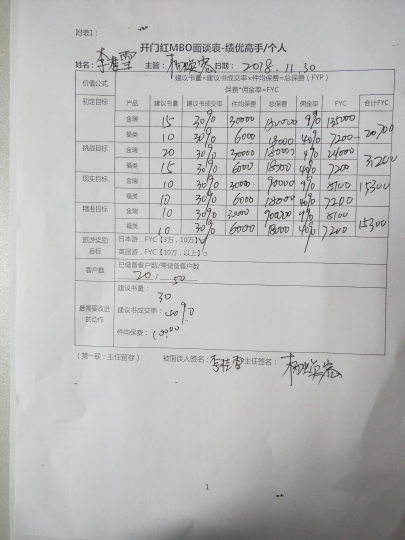 附表1：
开门红MBO面谈表-绩优高手/个人
姓名：李桂雪 主管： 日期：2018.11.30
价值公式 建议书量×建议书成交率×件均保费=总保费（FYP）
保费*佣金率=FYC
初定目标 产品 建议书量 建议书成交率 件均保费 总保费 佣金率 FYC 合计FYC
金瑞 15 30% 30000 9% 13500
福类 10 30% 6000 18000 40% 7200 20700
挑战目标 金瑞 20 30% 30000 180000 9% 24000
福类 15 30% 6000 18000 40% 7200 31200
现实目标 金瑞 10 30% 30000 90000 9% 8100
福类 10 30% 6000 18000 40% 7200 15300
精准目标 金瑞 10 30% 30000 900000 9% 8100
福类 10 30% 6000 18000 40% 7200 15300
旅游奖励目标 日本游，FYC【3万，10万】
英国游，FYC【10万，以上】
客户数 已储备客户数/需储备客户数
20/50
最需要改进的动作 建议书量：
30
建议书成交率：40%
件均保费：10000
（第一联：主任留存） 被面谈人签名：李桂雪 主任签名：
1